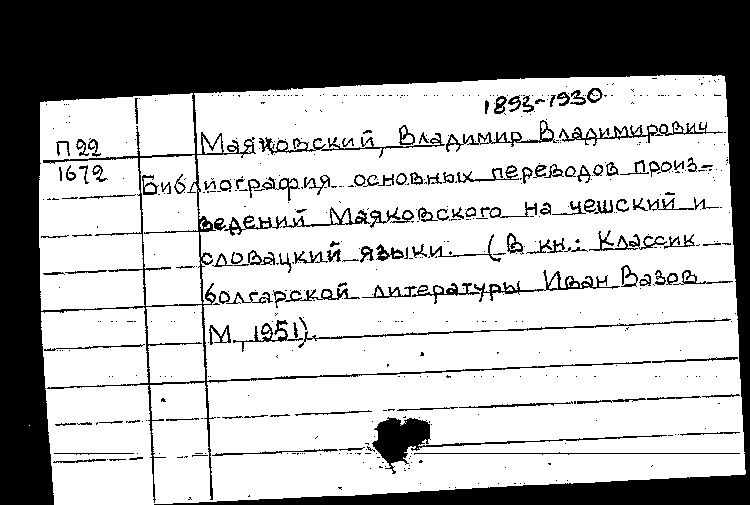 1893-1930
П 22
1672
Маяковский, Владимир Владимирович
Библиография основных переводов произ-
ведений Маяковского на чешский и
словацкий языки. (В кн.: Классик
болгарской литературы Иван Вазов
М., 1951).